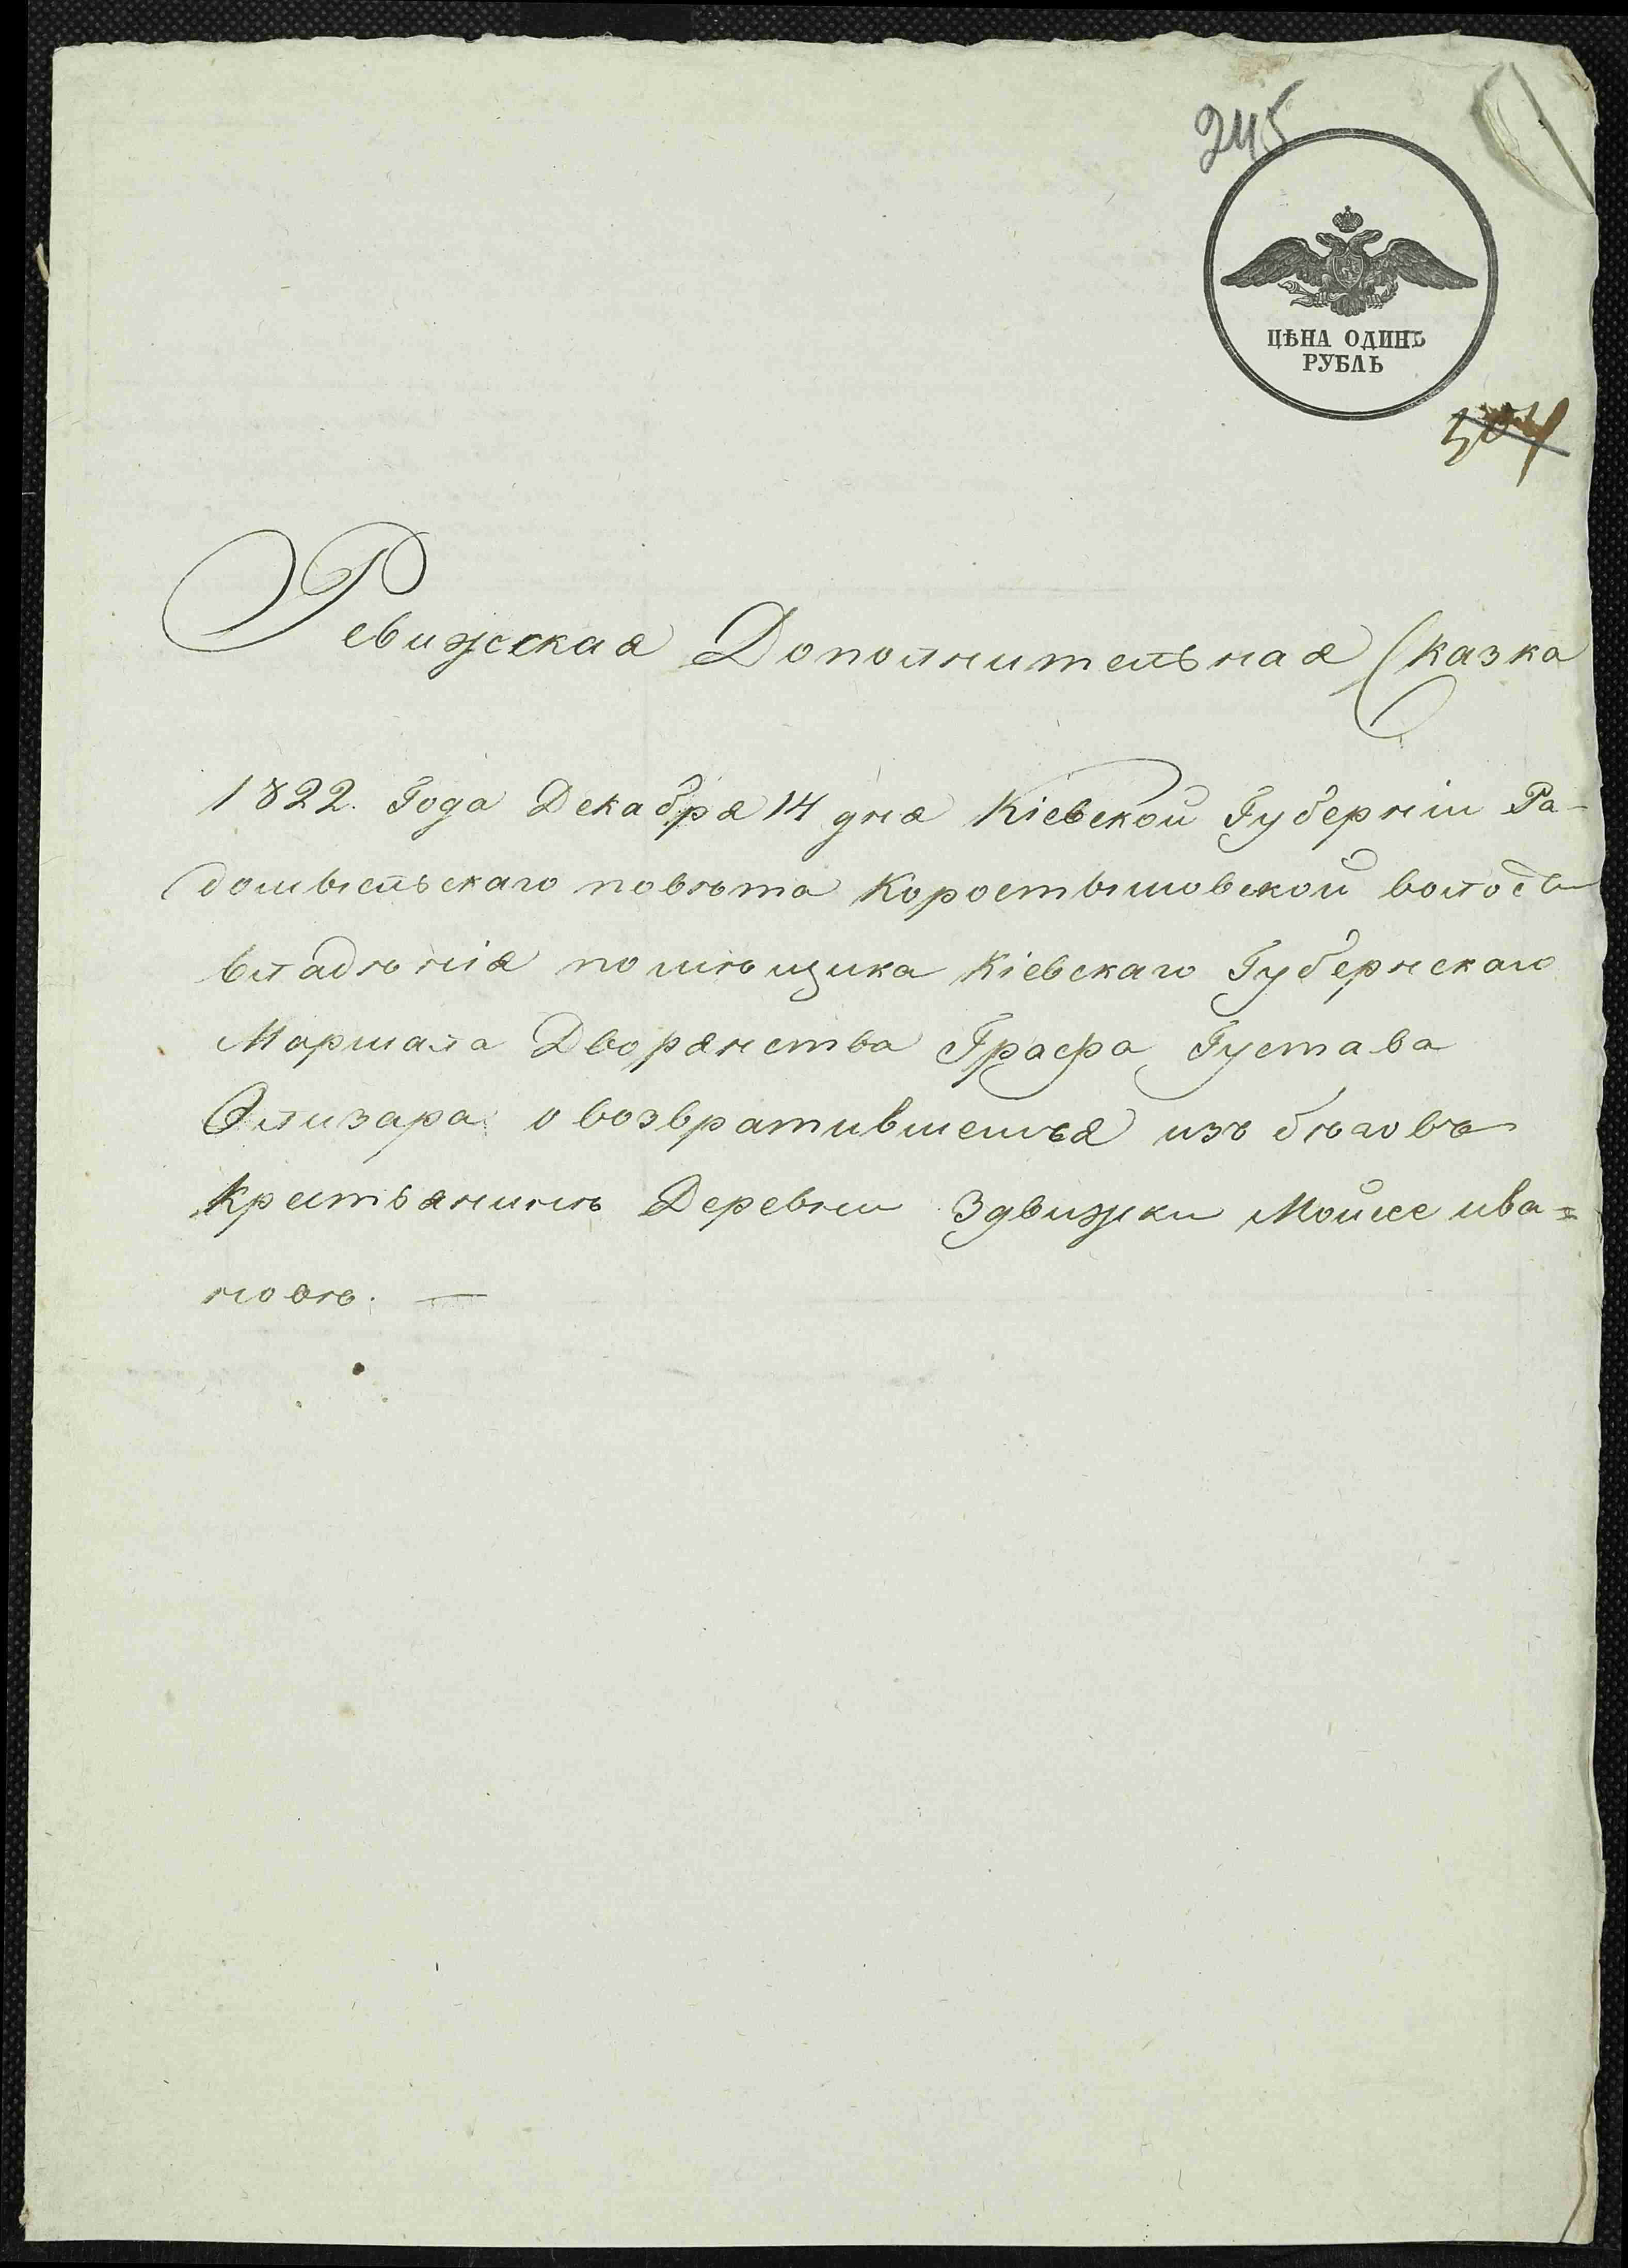 245
ЦѢНА ОДИНЪ
РУБЛЬ
504
Ревижская Дополнительная Сказка
1822. Года Декабря 14 дня Кіевской Губерніи Ра-
домысльскаго повѣта Коростышовской волость
владѣнія помѣщика Кіевскаго Губернскаго
Маршала Дворянства Графа Густава
Олизара о возвратившемъся изъ бѣговъ
Крестьянинѣ Деревни Здвижки Мойсе ива=
новѣ. —